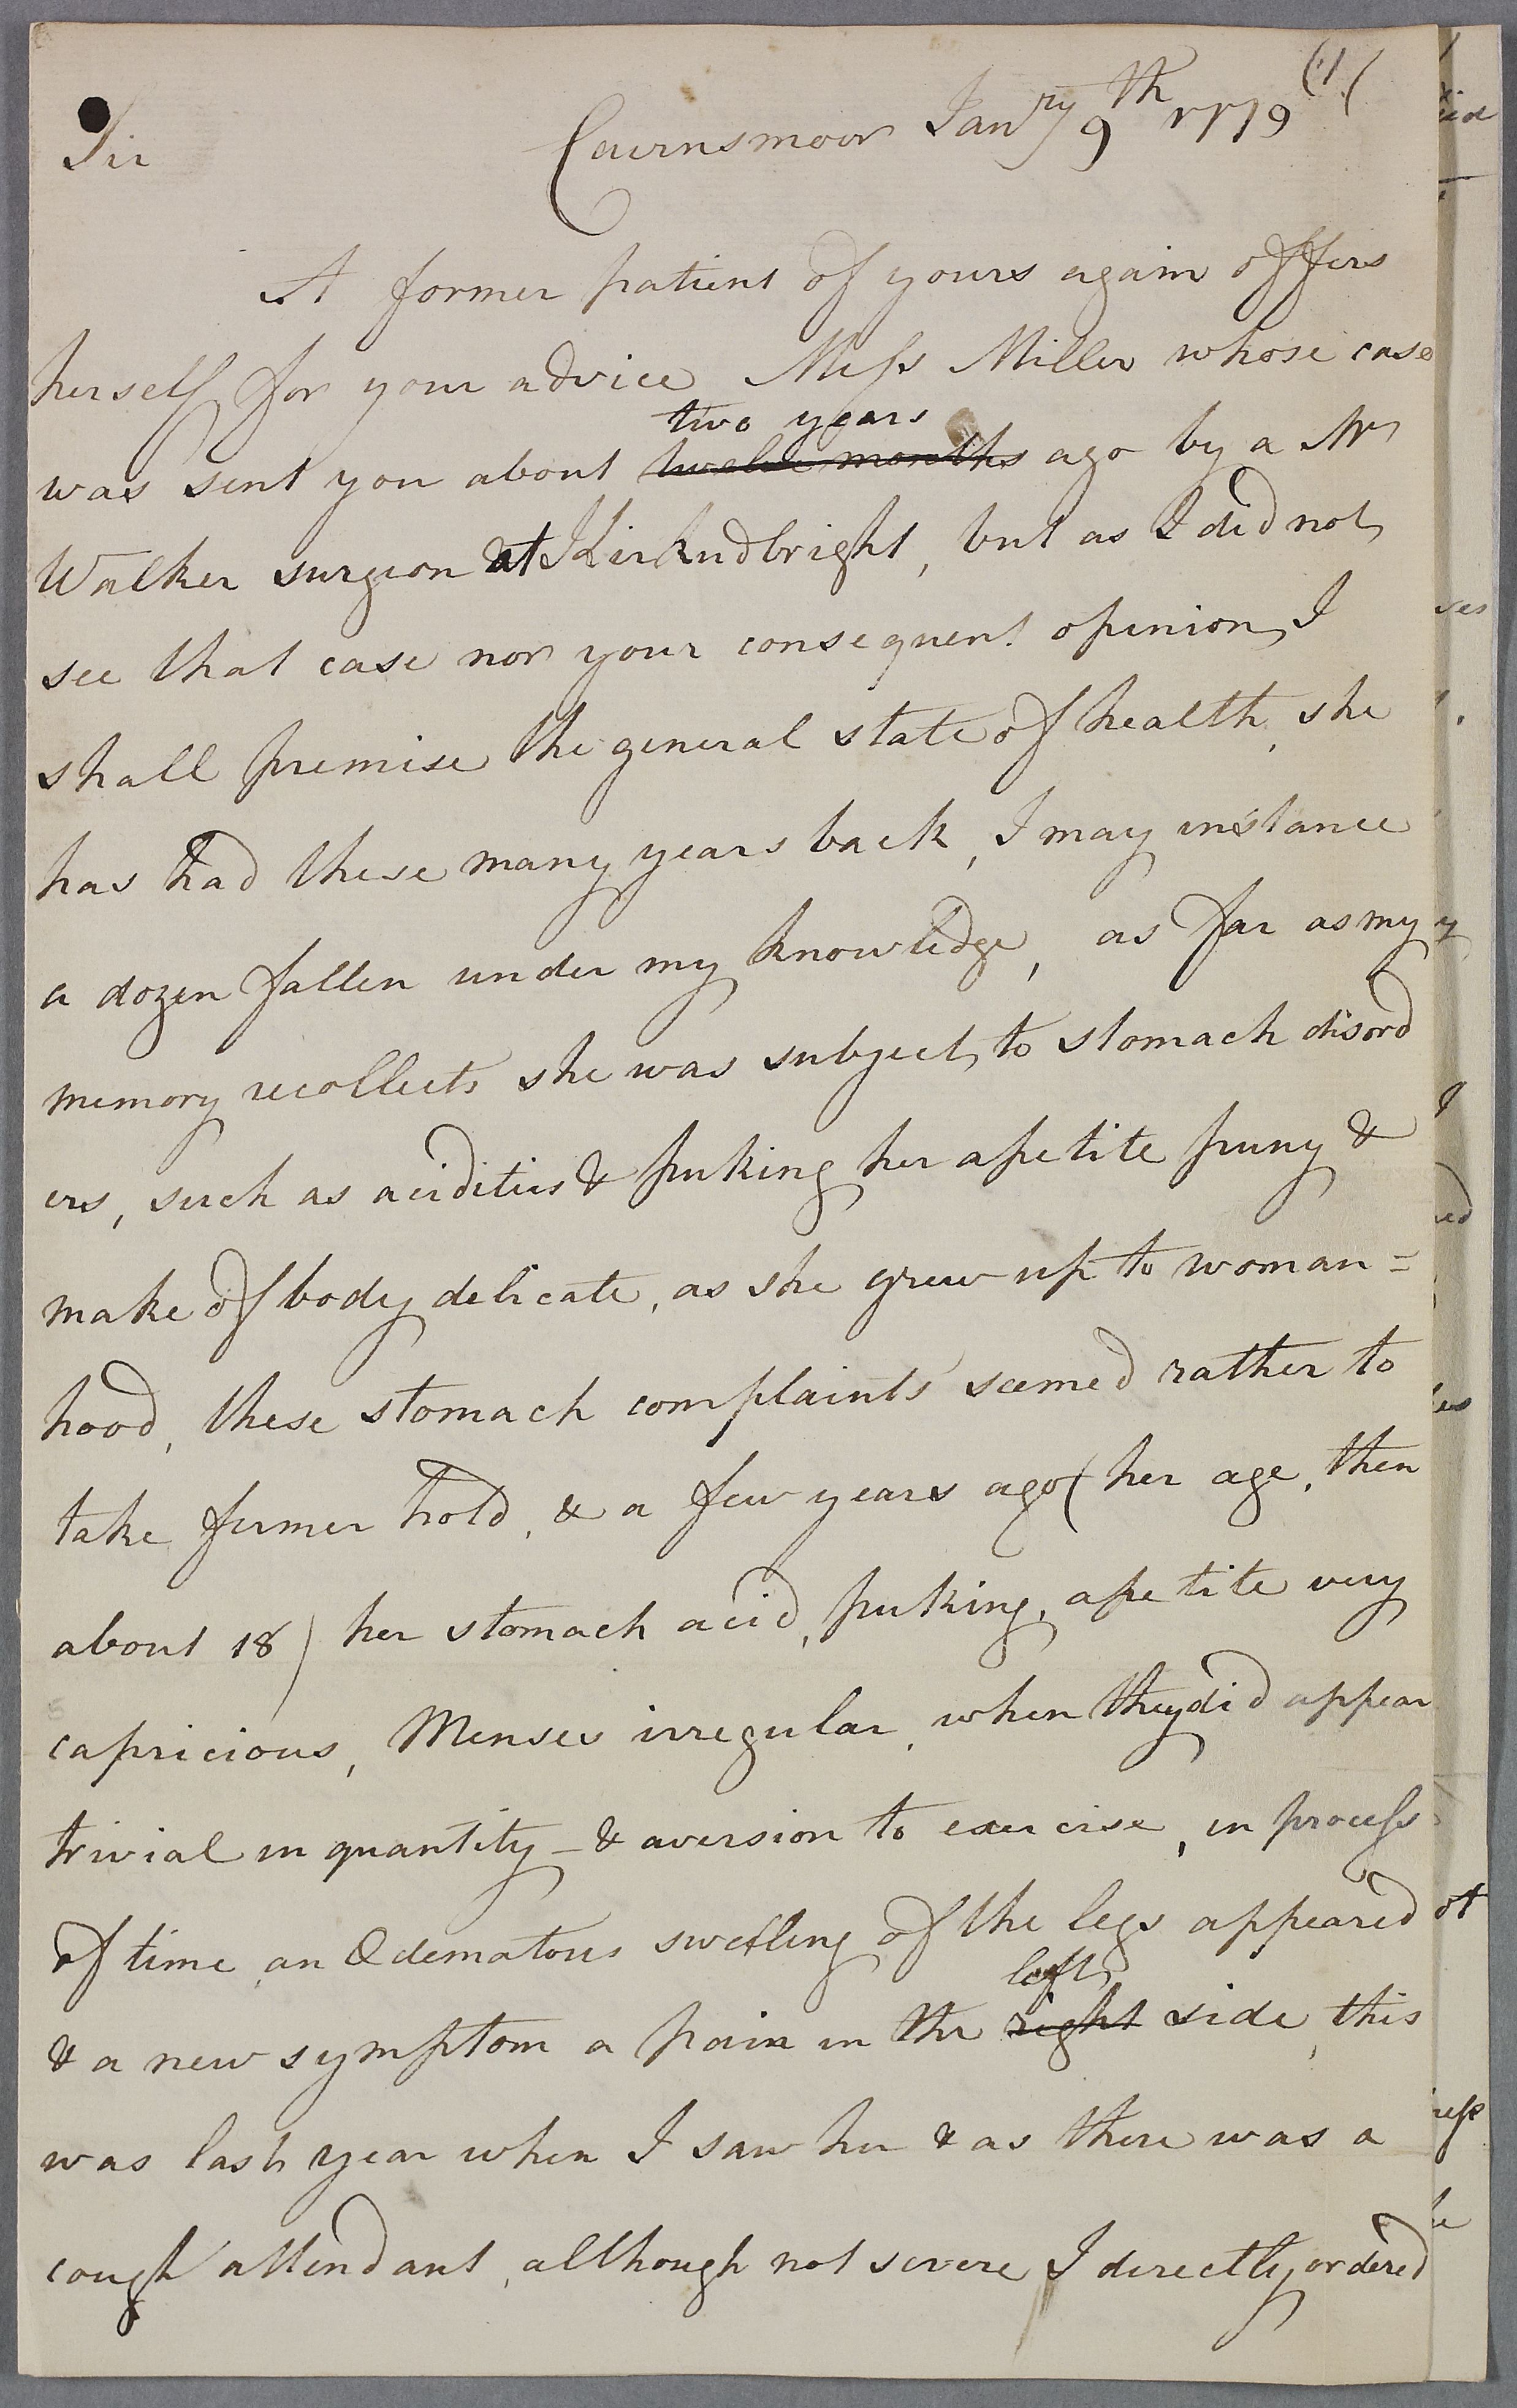 (1(
Sir Cairnsmoor Janry 9th 1779
A former patient of yours again offers
herself for your advice Miss Miller whose case
two years
was sent you about twelve months ago by a Mr
Walker surgeon at Kirkudbright, but as I did not
see that case nor your consequent opinion, I
shall premise the general state of health, she
has had these many years back, I may instance
a dozen fallen under my knowledge, as far as my
memory recollects she was subject to stomach disord
ers, such as acidities & puking her apetite puny &
make of body delicate, as she grew up to woman=
hood, these stomach complaints seemed rather to
take firmer hold, & a few years ago (her age, then
about 18) her stomach acid, puking, apetite very
capricious, Menses irregular, when they did appear
trivial in quantity - & aversion to exercise, in process
of time, an Œdematous swelling of the legs appeared
left
& a new symptom a pain in the right side, this
was last year when I saw her & as there was a
cough attendant, although not severe, I directly ordered